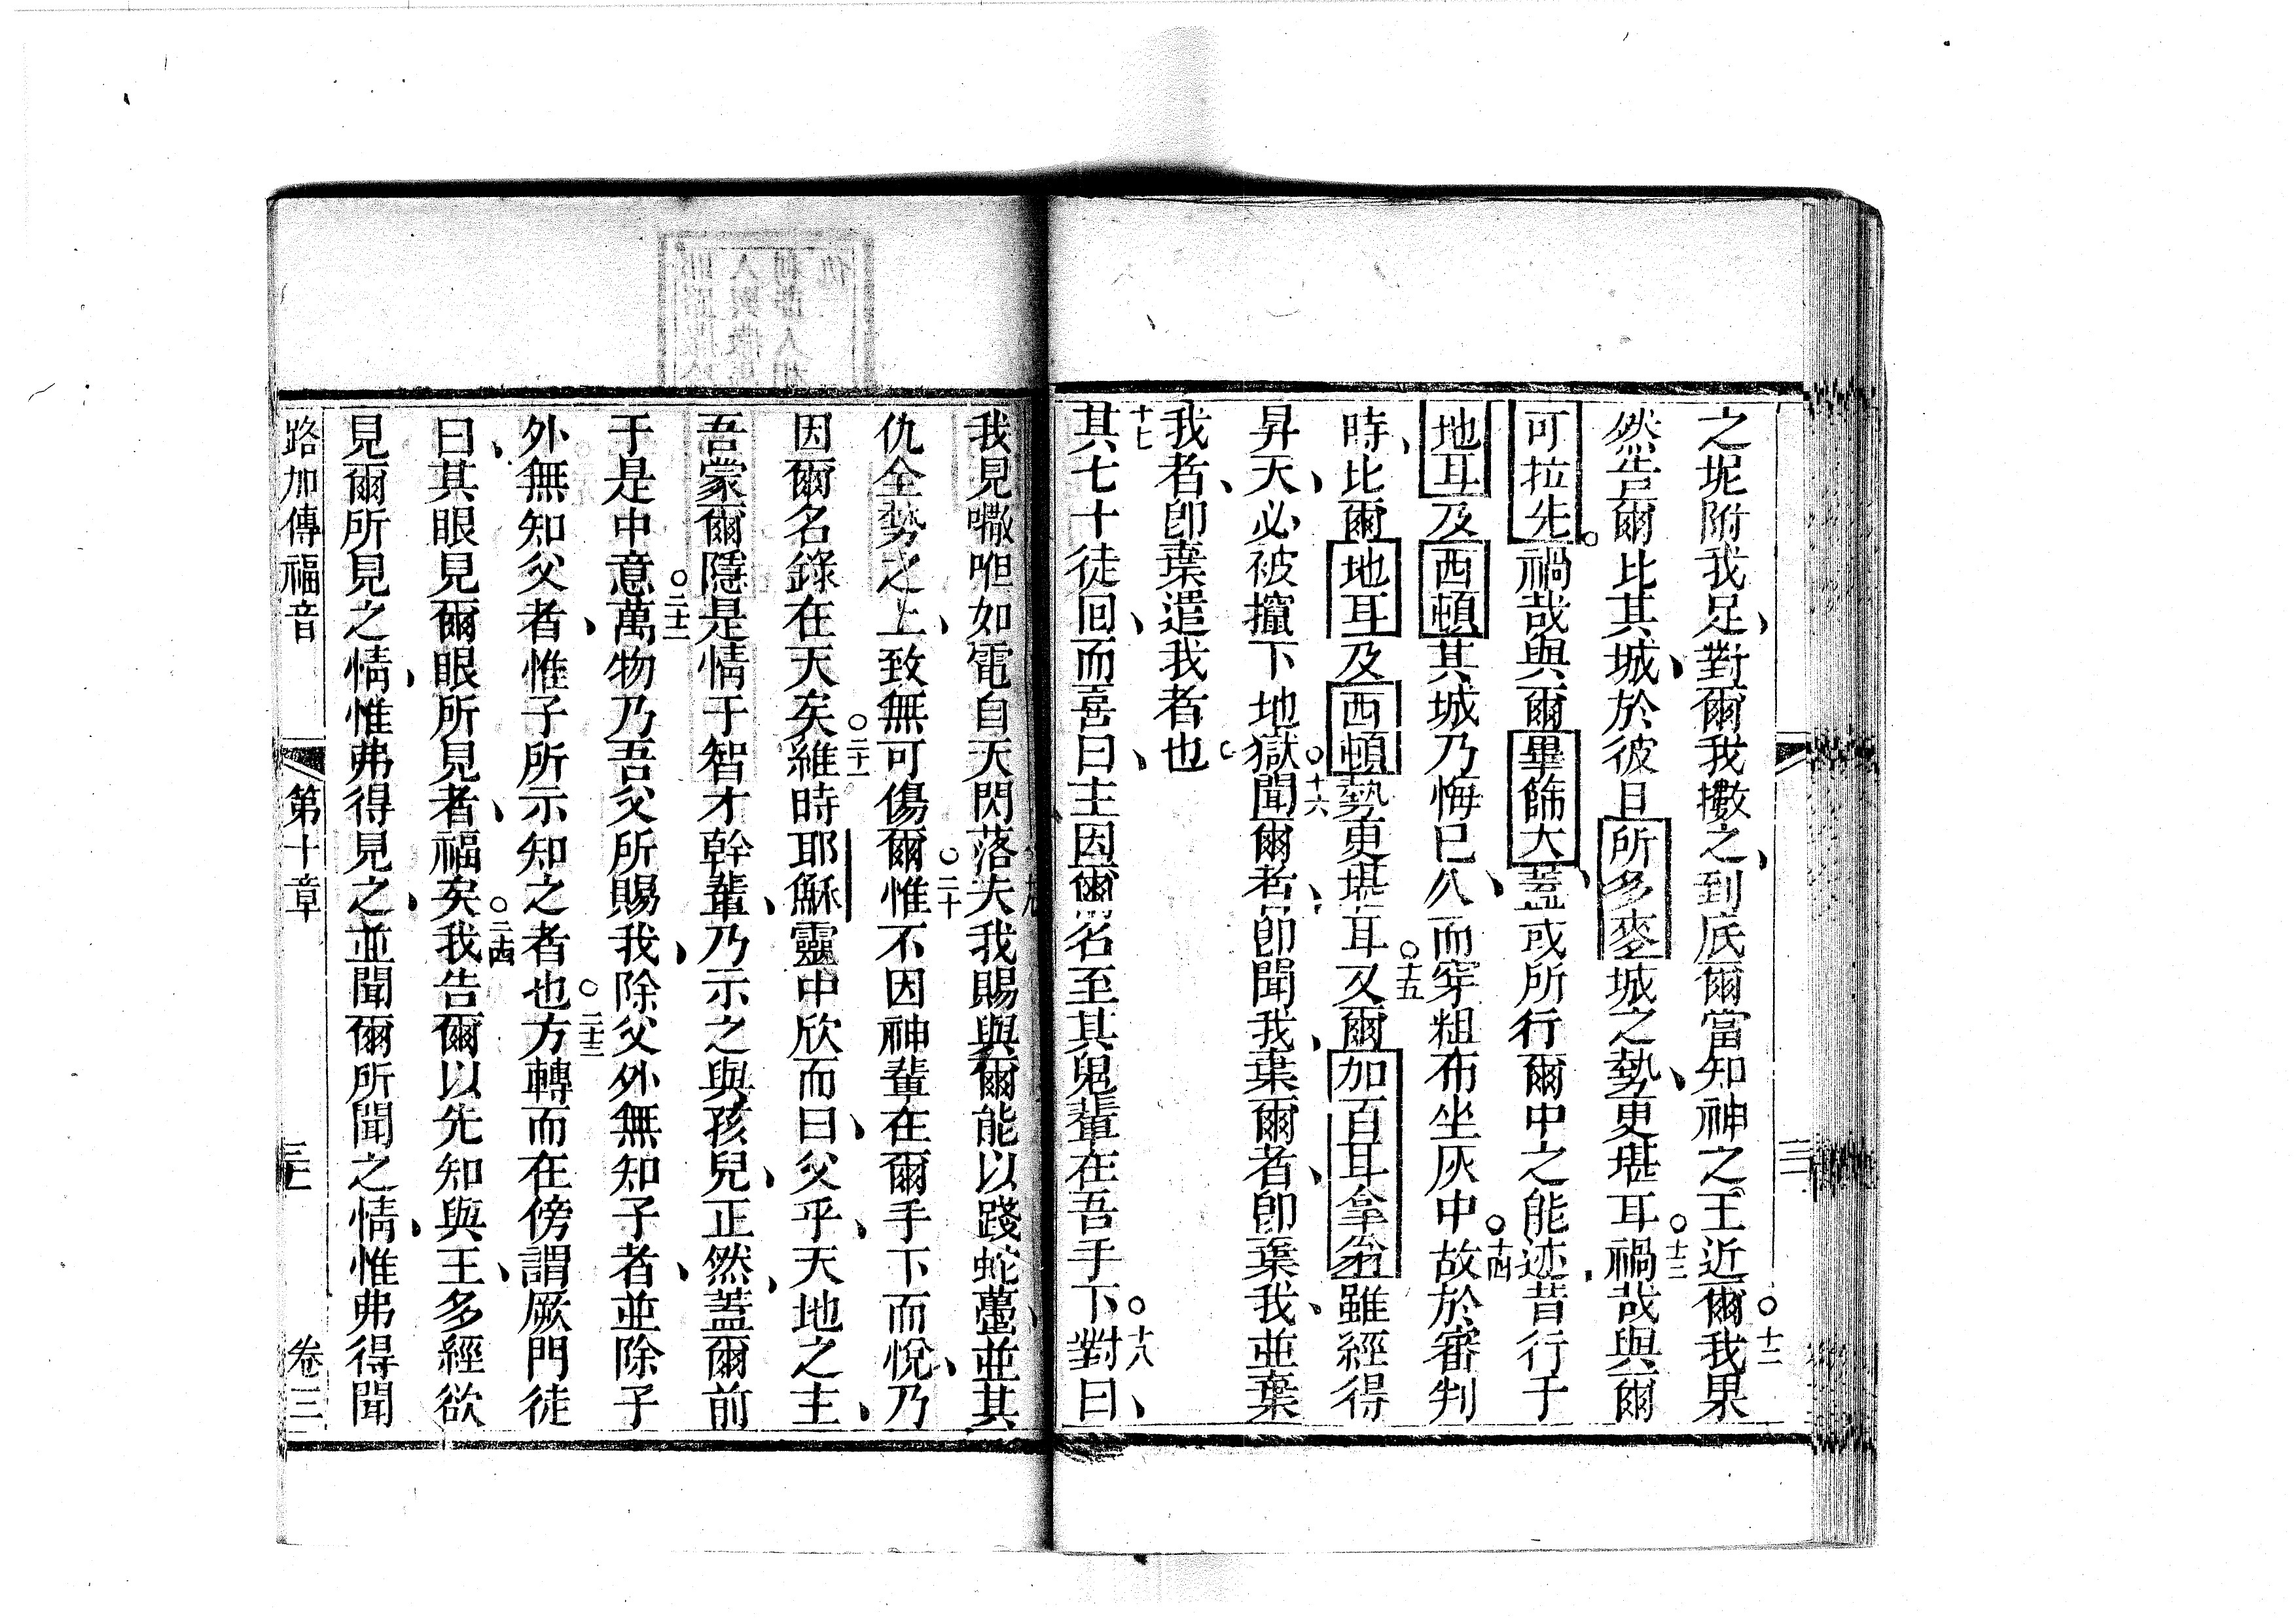 之坭附我足、對爾我擻之、到底爾當知神之王近爾。十二我果
然告爾比其城、於彼日所多麥城之勢、更堪耳。十三禍哉與爾
可拉先。禍哉與爾畢篩大、蓋或所行爾中之能迹、昔行于
地耳及西頓其城乃悔已久、而穿粗布坐灰中。十四故於審判
時、比爾地耳及西頓勢更堪耳。十五又爾加百耳拿翁雖經得
昇天、必被攛下地獄。十六聞爾者、卽聞我、棄爾者、卽棄我、並棄
我者、卽棄遣我者也。
十七其七十徒回、而喜曰、主因爾名至其鬼輩在吾手下。十八對曰、
我見㘔呾如電自天閃落。十九夫我賜與爾能以踐蛇蠆、並其
仇全勢之上、致無可傷爾。二十惟不因神輩在爾手下而悅、乃
因爾名錄在天矣。二十一維時耶穌靈中欣而曰、父乎、天地之主、
吾蒙爾隱是情于智才幹輩、乃示之與孩兒、正然、蓋爾前
于是中意。二十二萬物乃吾父所賜我、除父外無知子者、並除子
外無知父者、惟子所示知之者也。二十三方轉而在傍謂厥門徒
曰、其眼見爾眼所見者、福矣。二十四我告爾以先知與王、多經欲
見爾所見之情、惟弗得見之、並聞爾所聞之情、惟弗得聞
路加傳福音 第十章 卷三